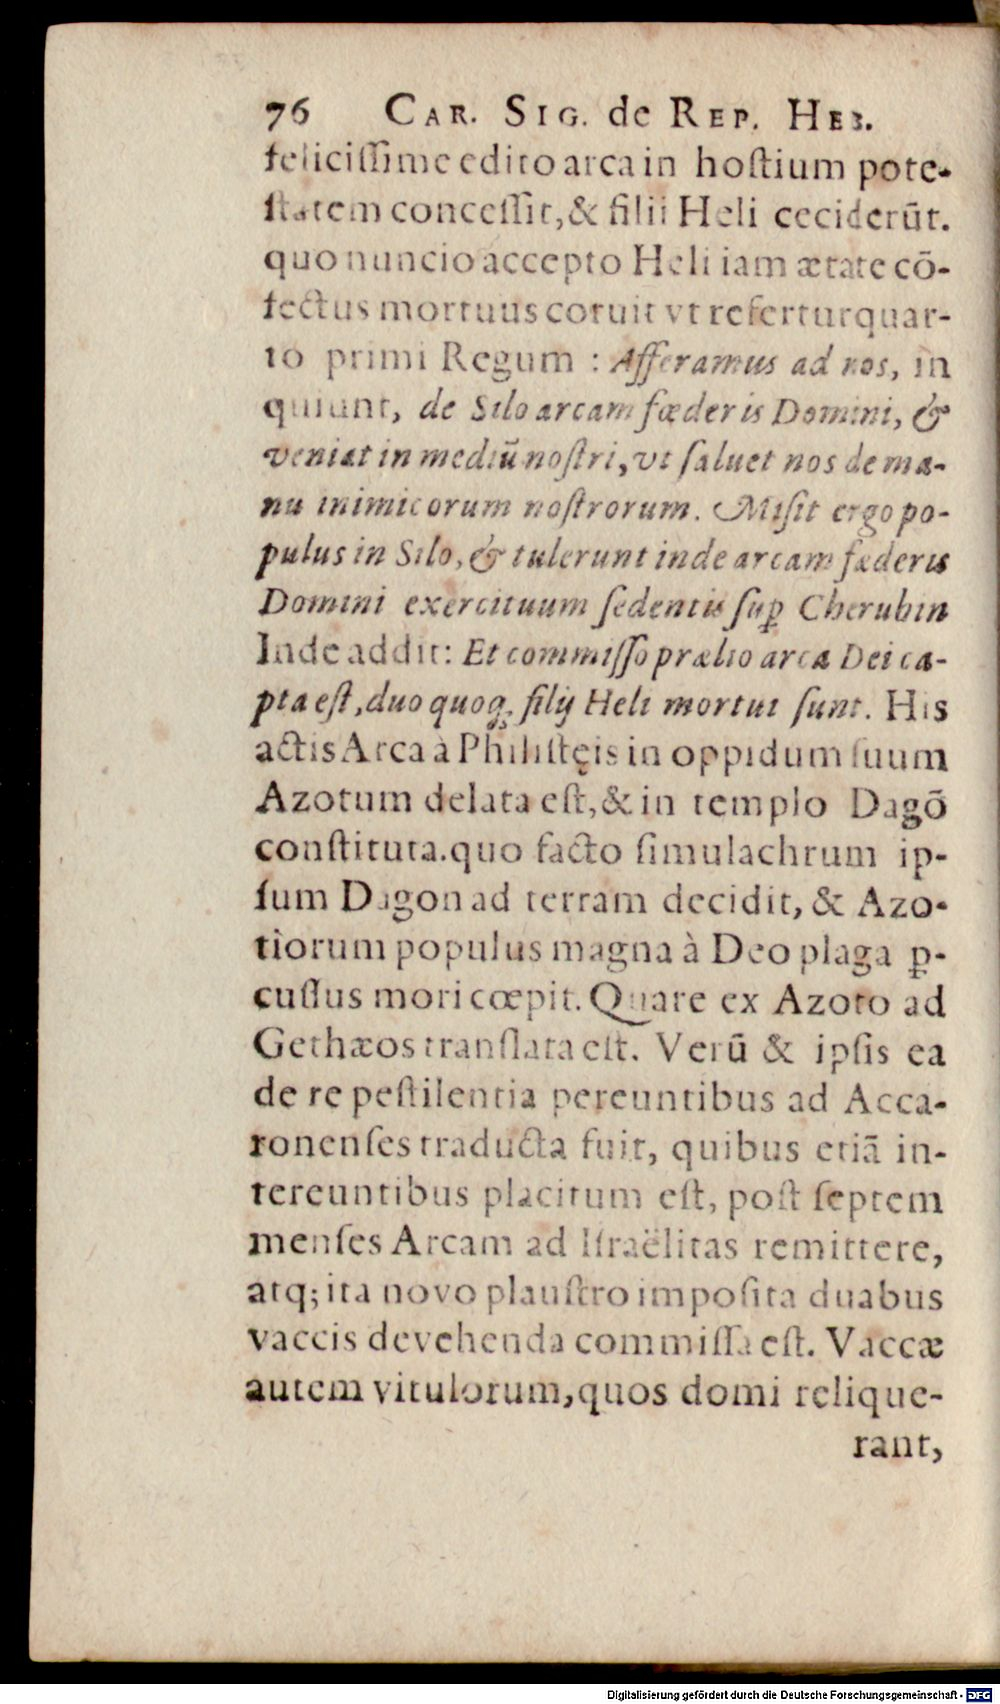 76 CAR. SIG. de REP. HEB.
feliciſſime edito arca in hoſtium pote-
ſtatem conceſſit, & filii Heli ceciderūt.
quo nuncio accepto Heli iam ætate cō-
fectus mortuus coruit vt refertur quar-
to primi Regum : Afferamus ad nos, in
quiunt, de Silo arcam fœderis Domini, &
veniat in mediū noſtri, vt ſaluet nos de ma-
nu inimicorum noſtrorum. Miſit ergo po-
pulus in Silo, & tulerunt inde arcam fœderis
Domini exercituum ſedentis ſuꝑ Cherubin
Inde addit: Et commiſſo prælio arca Dei ca-
pta eſt, duo quoq; filij Heli mortui ſunt. His
actis Arca à Philiſtęis in oppidum ſuum
Azotum delata eſt, & in templo Dagō
conſtituta. quo facto ſimulachrum ip-
ſum Dagon ad terram decidit, & Azo-
tiorum populus magna à Deo plaga ꝑ-
cuſſus mori cœpit. Quare ex Azoto ad
Gethæos tranſlata eſt. Verū & ipſis ea
de re peſtilentia pereuntibus ad Acca-
ronenſes traducta fuit, quibus etiā in-
tereuntibus placitum eſt, poſt ſeptem
menſes Arcam ad Iſraëlitas remittere,
atq; ita novo plauſtro impoſita duabus
vaccis devehenda commiſſa eſt. Vaccæ
autem vitulorum, quos domi relique-
rant,
Digitalisierung gefördert durch die Deutsche Forschungsgemeinschaft - DFG